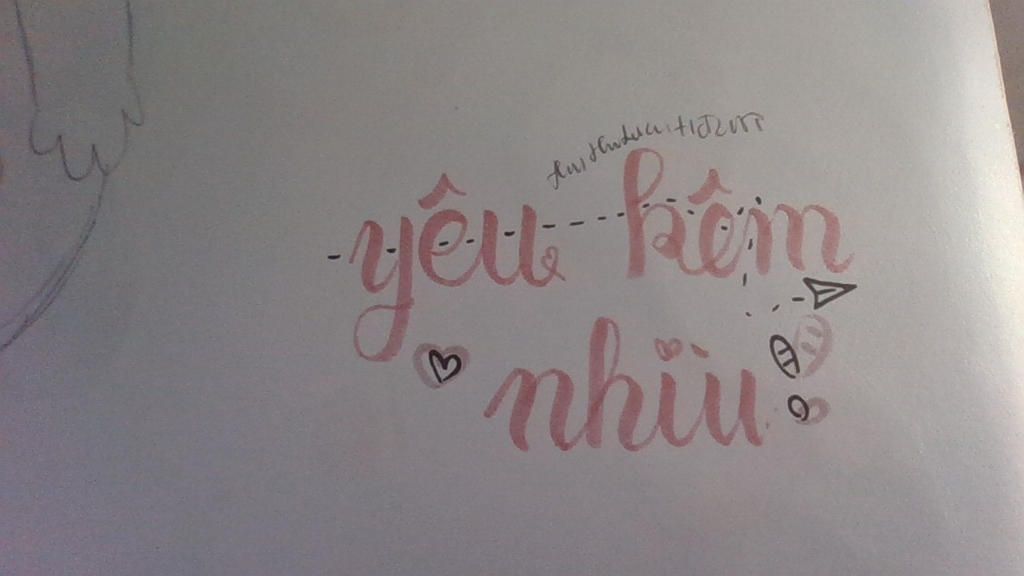 yêu kêm
nhïu!